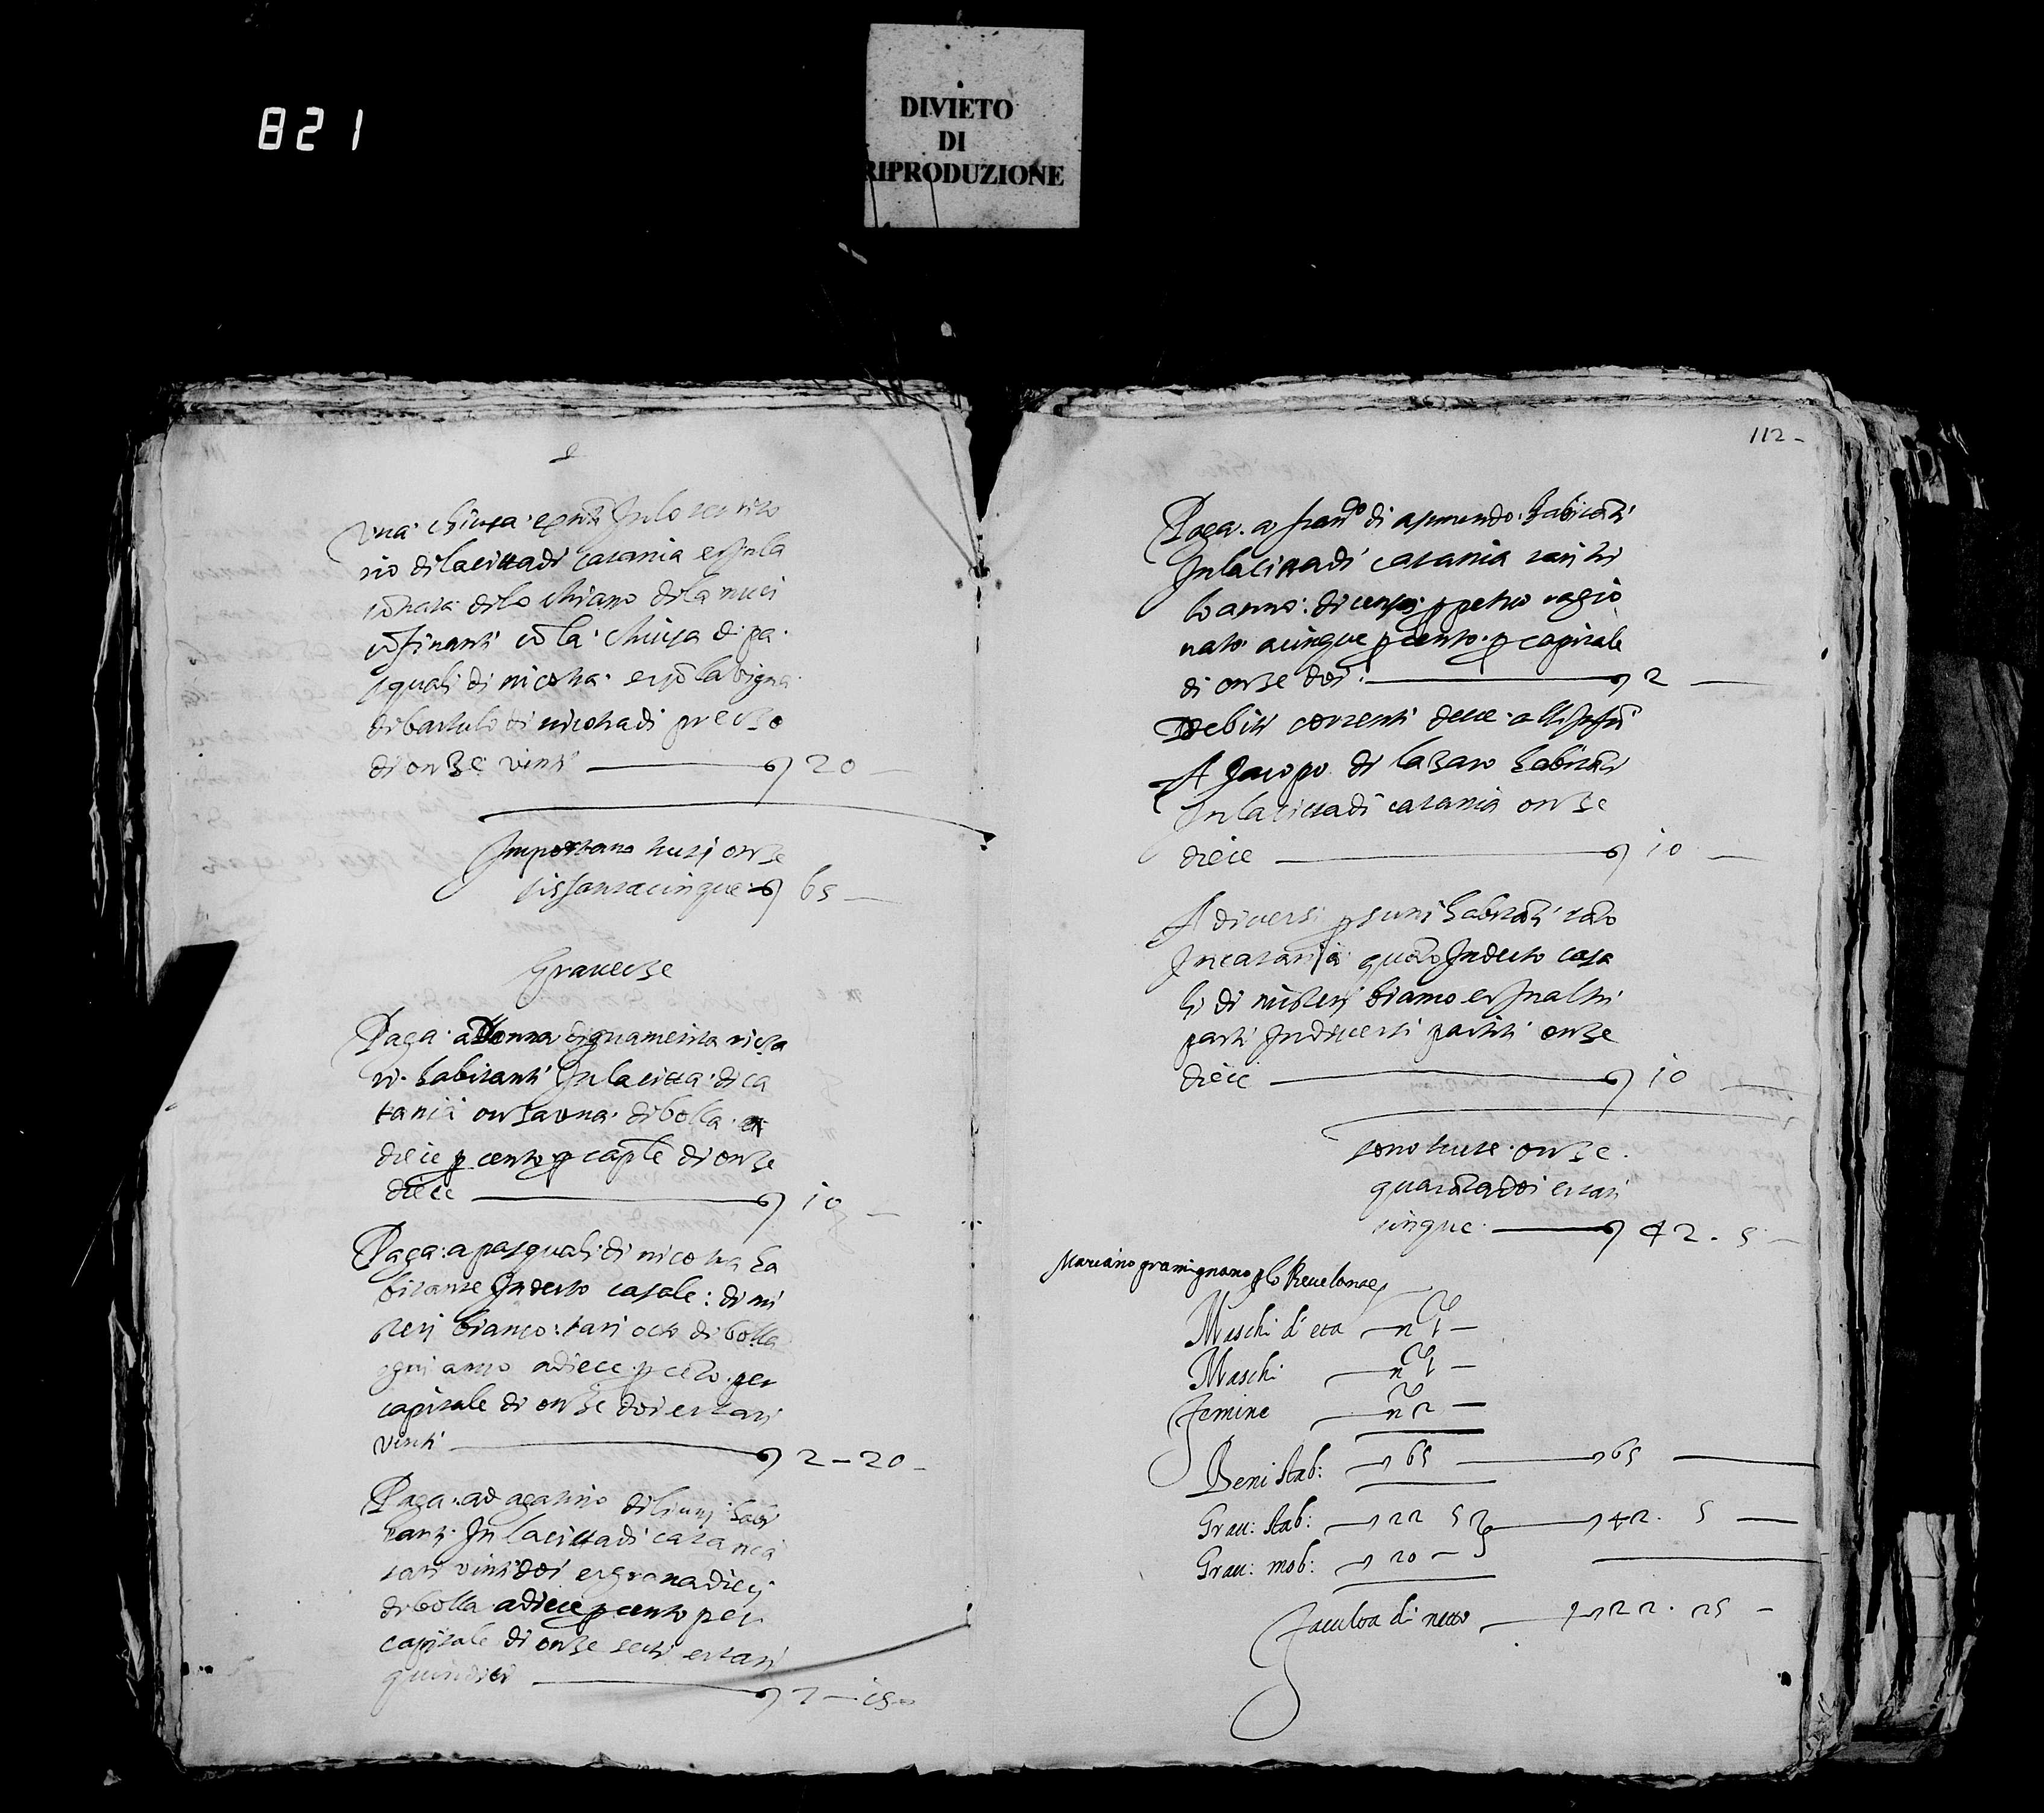 821
DIVIETO
DI
RIPRODUZIONE
una chiusa Inlo territo
rio dilacittadi catania et Inla
cōtrata dilo chiano dila nuci
cōfinanti cō la chiusa di pa
squali di nicotra et cō la vigna
di bartulo di nicotra di prezzo
di onze vinti 20
Importano tutti onze
sissantacinque 65
Gravezze
Paga a Donna
habitanti Inla citta di ca
tania onza una di bolla
diece p cento p cap̄le di onze
diece 10
Paga a pasquali di nicotra ha
bitante In detto casale di mi
steri bianco tari octo di bolla
ogni anno a diece p cēto per
capitale di onze doi et tari
vinti 2 - 20
Paga ad agatino di habi
tanti In lacittadi catania
tari vintidoi et grana dieci
di bolla a diece p cento per
capitale di onze setti et tari
quindici 7 - 15
112
Paga a di habitāti
Inlacittadi catania tari tri
lo anno di censo p petuo ragio
nato a cinque p cento p capitale
di onze doi 2
Debiti correnti deve alli
A Jacopo di lazaro habitāti
Inlacittadi catania onze
diece 10
A diversi p suni habitāti tāto
In catania quāto In detto casa
li di misteri bianco et In altri
parti In diversi partiti onze
diece 10
sono tutte onze
quarātadoi et tari
cinque 42 . 5
Mariano gramignano p lo Revelante
Maschi d'eta n 1
Maschi n 1
Femine n 2
Beni stab: 65 65
Grav: stab: 22 5 42 . 5
Grav: mob: 20
Faculta di netto 22 . 25